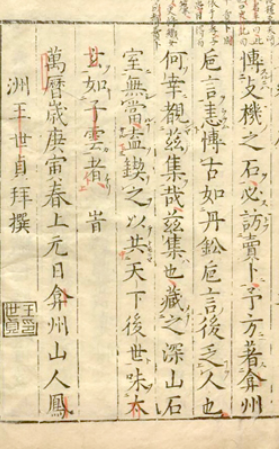 愽支機之石必訪賣卜予方著弇州
卮言恚愽古如丹鉛卮言後乏人也
何幸覩茲集哉茲集也藏之深山石
室無當盍鍥之以共天下後世味太
玄如子雲者 旹
萬曆歲庚寅春上元日弇州山人鳳
洲王世貞拜撰